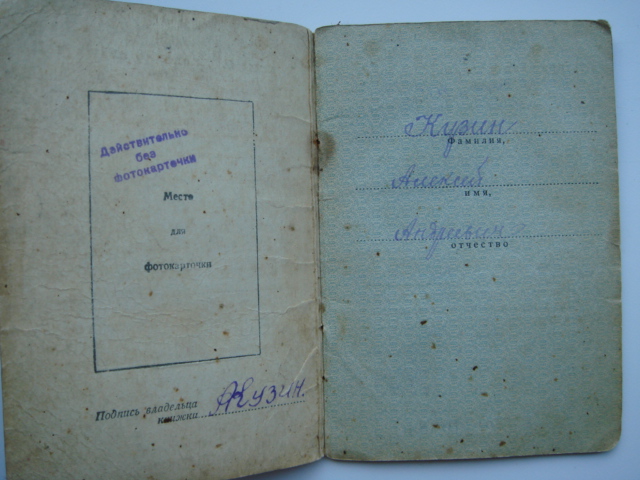 Действительно
без
фотокарточки
Место
для
фотокарточки
Подпись владельца
книжки АКузин.
Кузин
Фамилия,
Алексей
имя,
Андреевич
отчество